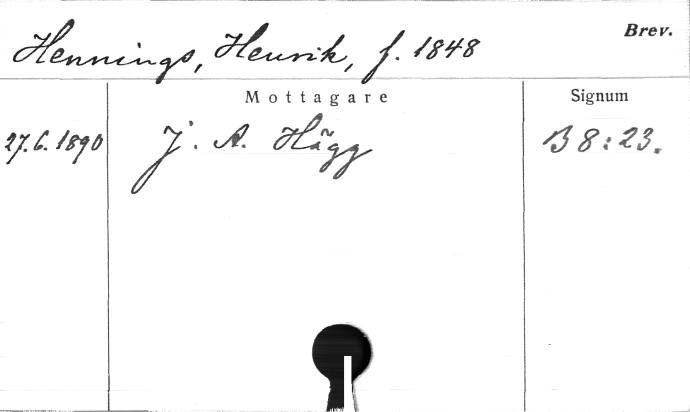 Brev.
Hennings, Henrik, f. 1848
Mottagare Signum
27.6.1890 J. A. Hägg B 8:23.